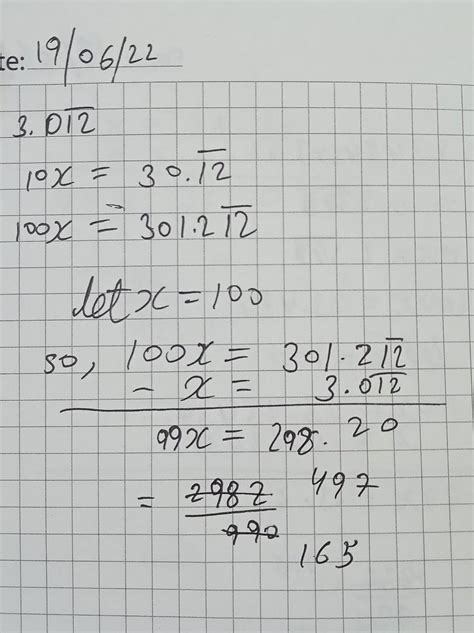 te: 19/06/22
3.01̅2̅
10x = 30.1̅2̅
100x = 301.21̅2̅
let x = 100
so, 100x = 301.21̅2̅
- x = 3.01̅2̅
99x = 298.20
= 2982 497
990 165